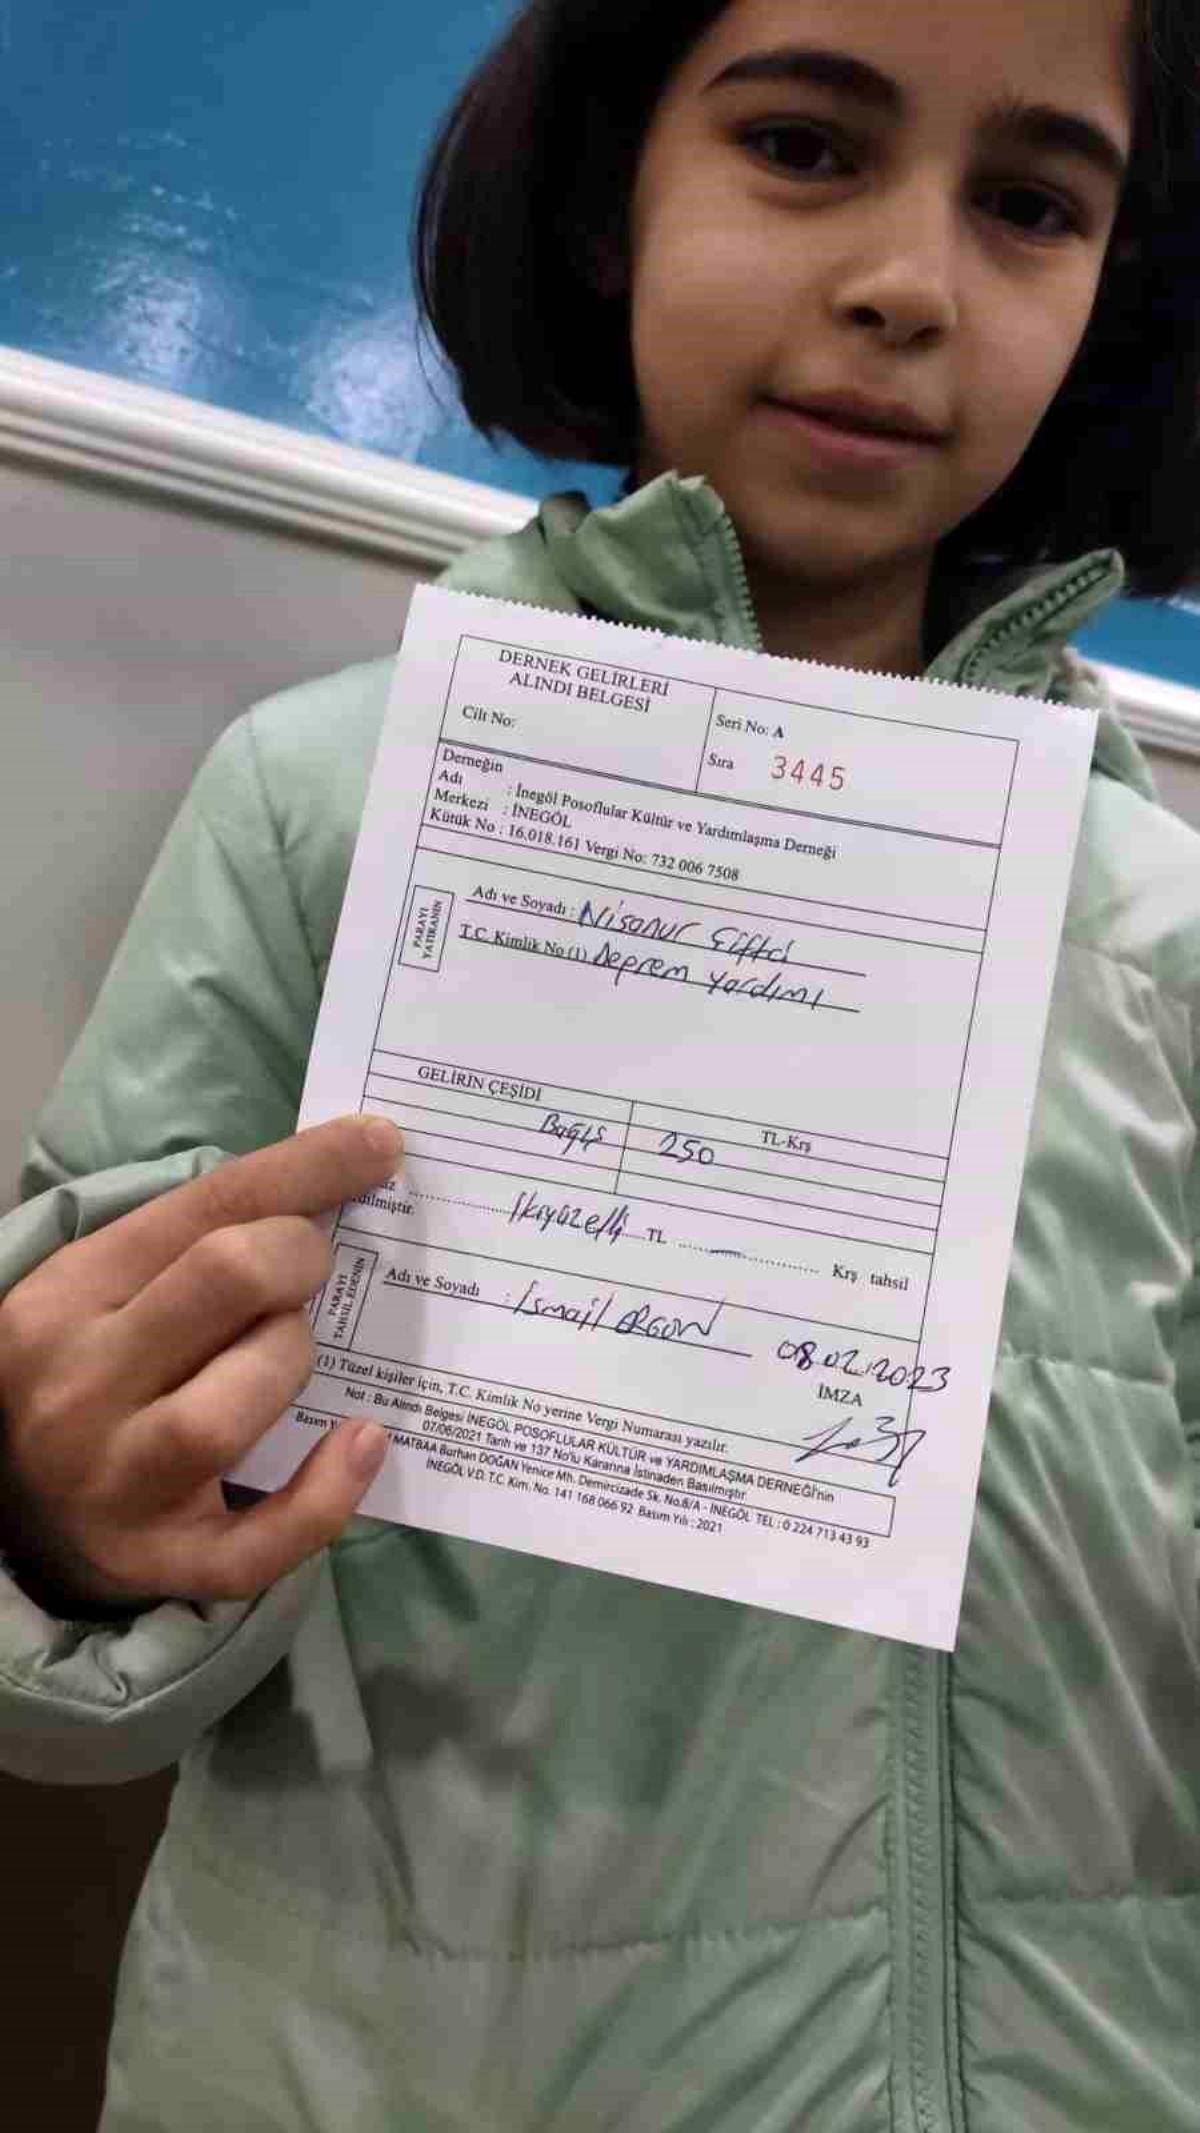 DERNEK GELİRLERİ
ALINDI BELGESİ
Cilt No:
Seri No: A
Sıra 3445
Derneğin
Adı : İnegöl Posoflular Kültür ve Yardımlaşma Derneği
Merkezi : İNEGÖL
Kütük No : 16.018.161 Vergi No: 732 006 7508
PARAYI
YATIRANIN
Adı ve Soyadı : Nisanur Çiftci
T.C. Kimlik No (1) Deprem Yardımı
GELİRİN ÇEŞİDİ
TL-Krş
Bağış 250
İkiyüzelli TL Krş tahsil
edilmiştir.
PARAYI
TAHSİL EDENİN
Adı ve Soyadı : İsmail ERGÜN 08.02.2023
İMZA
(1) Tüzel kişiler için, T.C. Kimlik No yerine Vergi Numarası yazılır.
Not : Bu Alındı Belgesi İNEGÖL POSOFLULAR KÜLTÜR ve YARDIMLAŞMA DERNEĞİ'nin
07/06/2021 Tarih ve 137 No'lu Kararına İstinaden Basılmıştır
Basım MATBAA Burhan DOĞAN Yenice Mh. Demircizade Sk. No.8/A - İNEGÖL TEL : 0 224 713 43 93
İNEGÖL V.D. T.C. Kim. No. 141 168 066 92 Basım Yılı : 2021